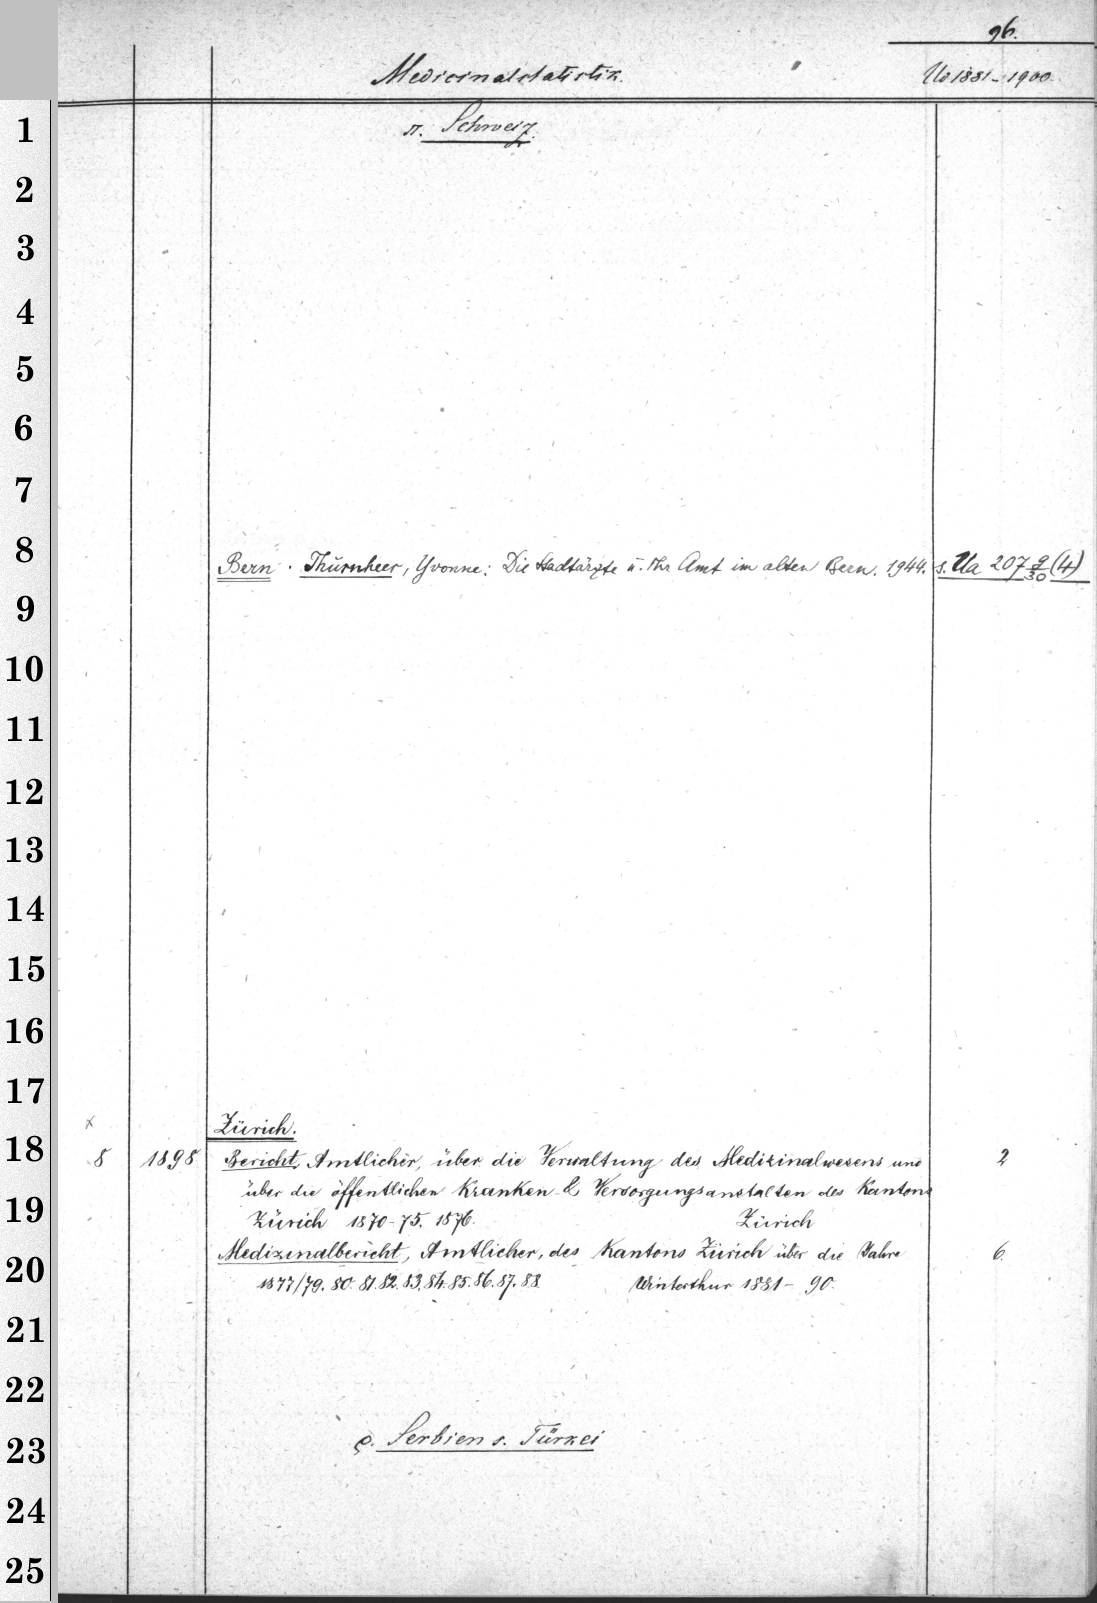 96.
Medicinalstatistik. Uo 1881-1900.
π. Schweiz.
1
2
3
4
5
6
7
8
Bern. Thürnheer, Yvonne: Die Stadtärzte u. Ihr Amt im alten Bern. 1944. s. Ua 207 9/30 (4)
9
10
11
12
13
14
15
16
17
Zürich.
18
8 1898 Bericht, Amtlicher, über die Verwaltung des Medizinalwesens und 2
19
über die öffentlichen Kranken- & Versorgungsanstalten des Kantons
Zürich 1870-75. 1876. Zürich
Medizinalbericht, Amtlicher, des Kantons Zürich über die Jahre 6.
20
1877/79. 80. 81. 82. 83. 84. 85. 86. 87. 88. Winterthur 1881- 90.
21
22
23
ρ. Serbien s. Türkei
24
25